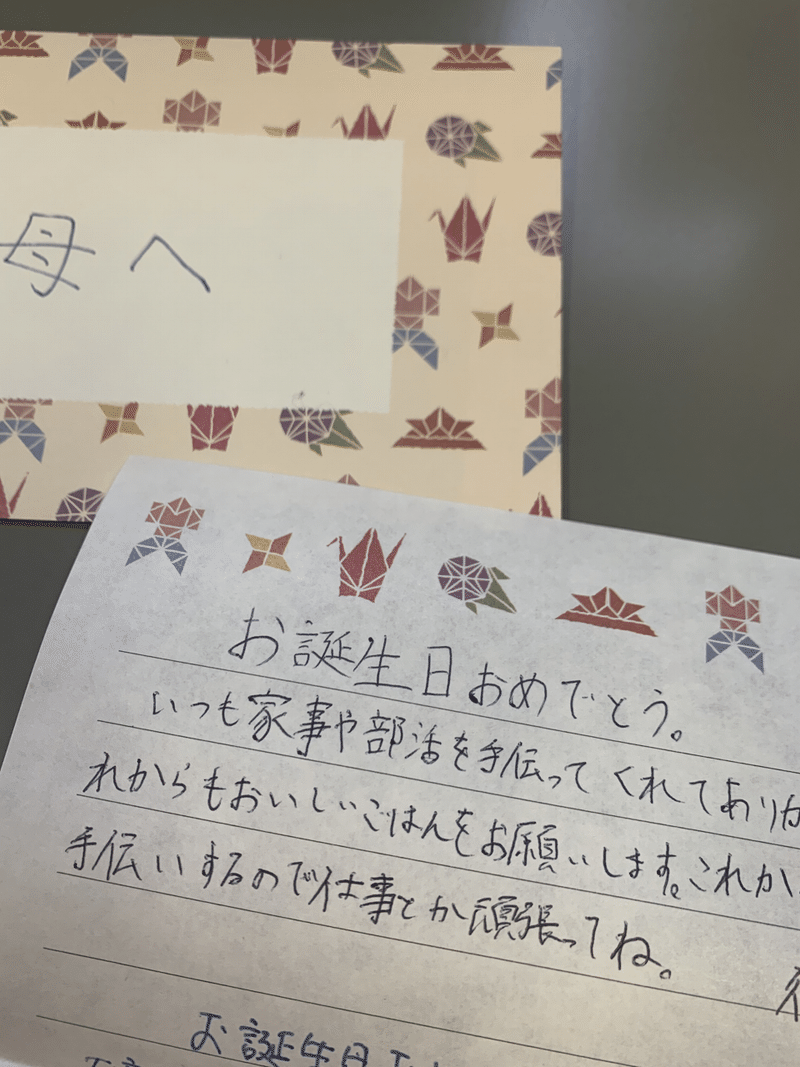 母へ
お誕生日おめでとう。
いつも家事や部活を手伝ってくれてありが
れからもおいしいごはんをお願いします。これか
手伝いするので仕事とか頑張ってね。
お誕生日お